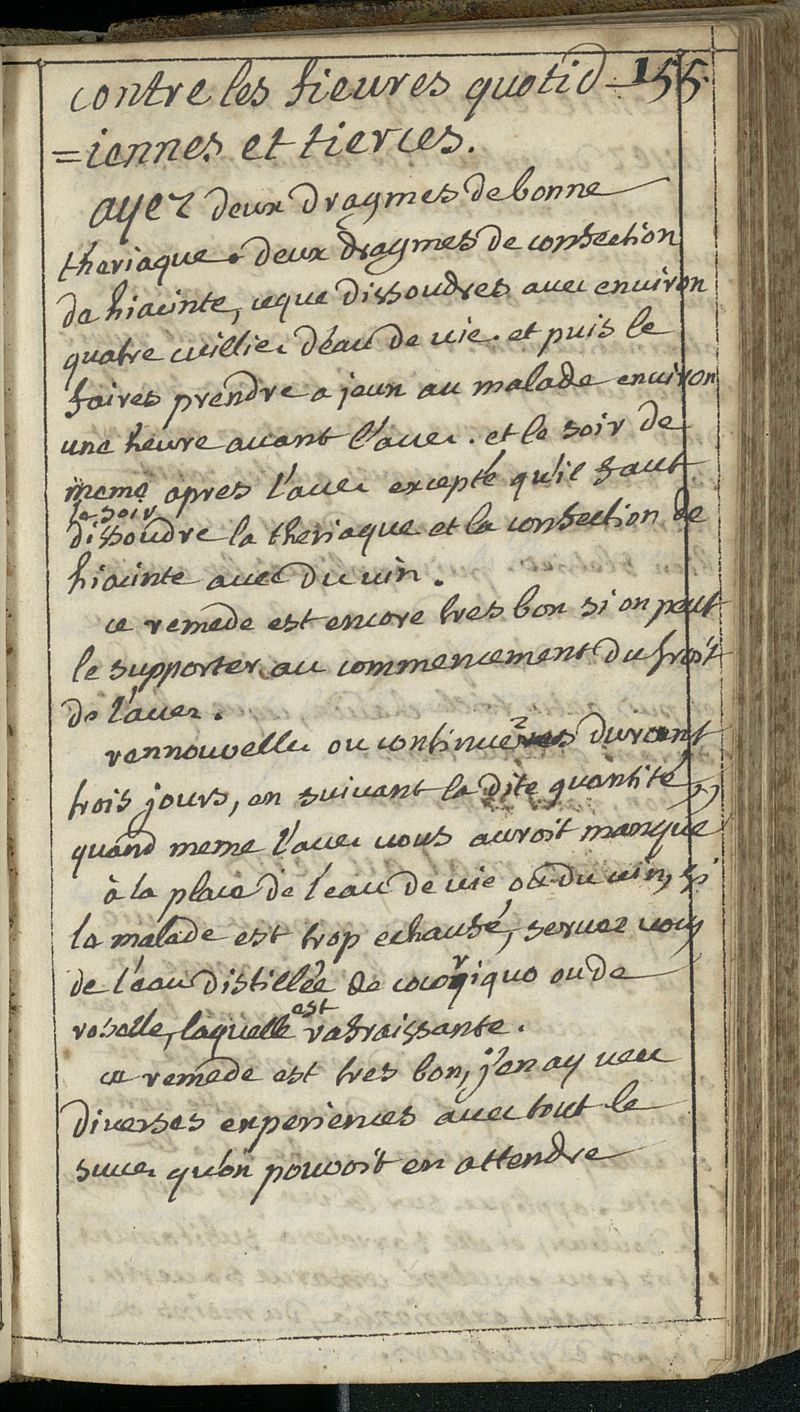 contre les fievres quotid 155.
=iennes et tierces.
ayez deux dragmes de bonne
thériaque. deux dragmes de confection
de hiacinte, ce que dissoudres avec environ
quatre cuillier d'éau de vie. et puis le
faires prendre a jeun au malade environ
une heure avant l'accer. et le soir de
meme apres l'accer excepté qu'il faut
le soir
dissoudre la theriaque et la confection de
hiacinte avec du vin.
ce remede est encore tres bon si on peut
le supporter au commencement du froit
de l'accer.
rennouveller ou continuerez durant
trois jours, en suivant la dite quantité,
quand meme l'accer vous auroit manqué
à la place de l'eau de vie ou du vin, si
la malade est trop echaufé, servez vous
de l'éau distillée de ou de
roselle, laquelle est rafraissante.
ce remede est tres bon, j'en ay veu
diverses experiences avec tout le
succer qu'on pouvoit en attendre